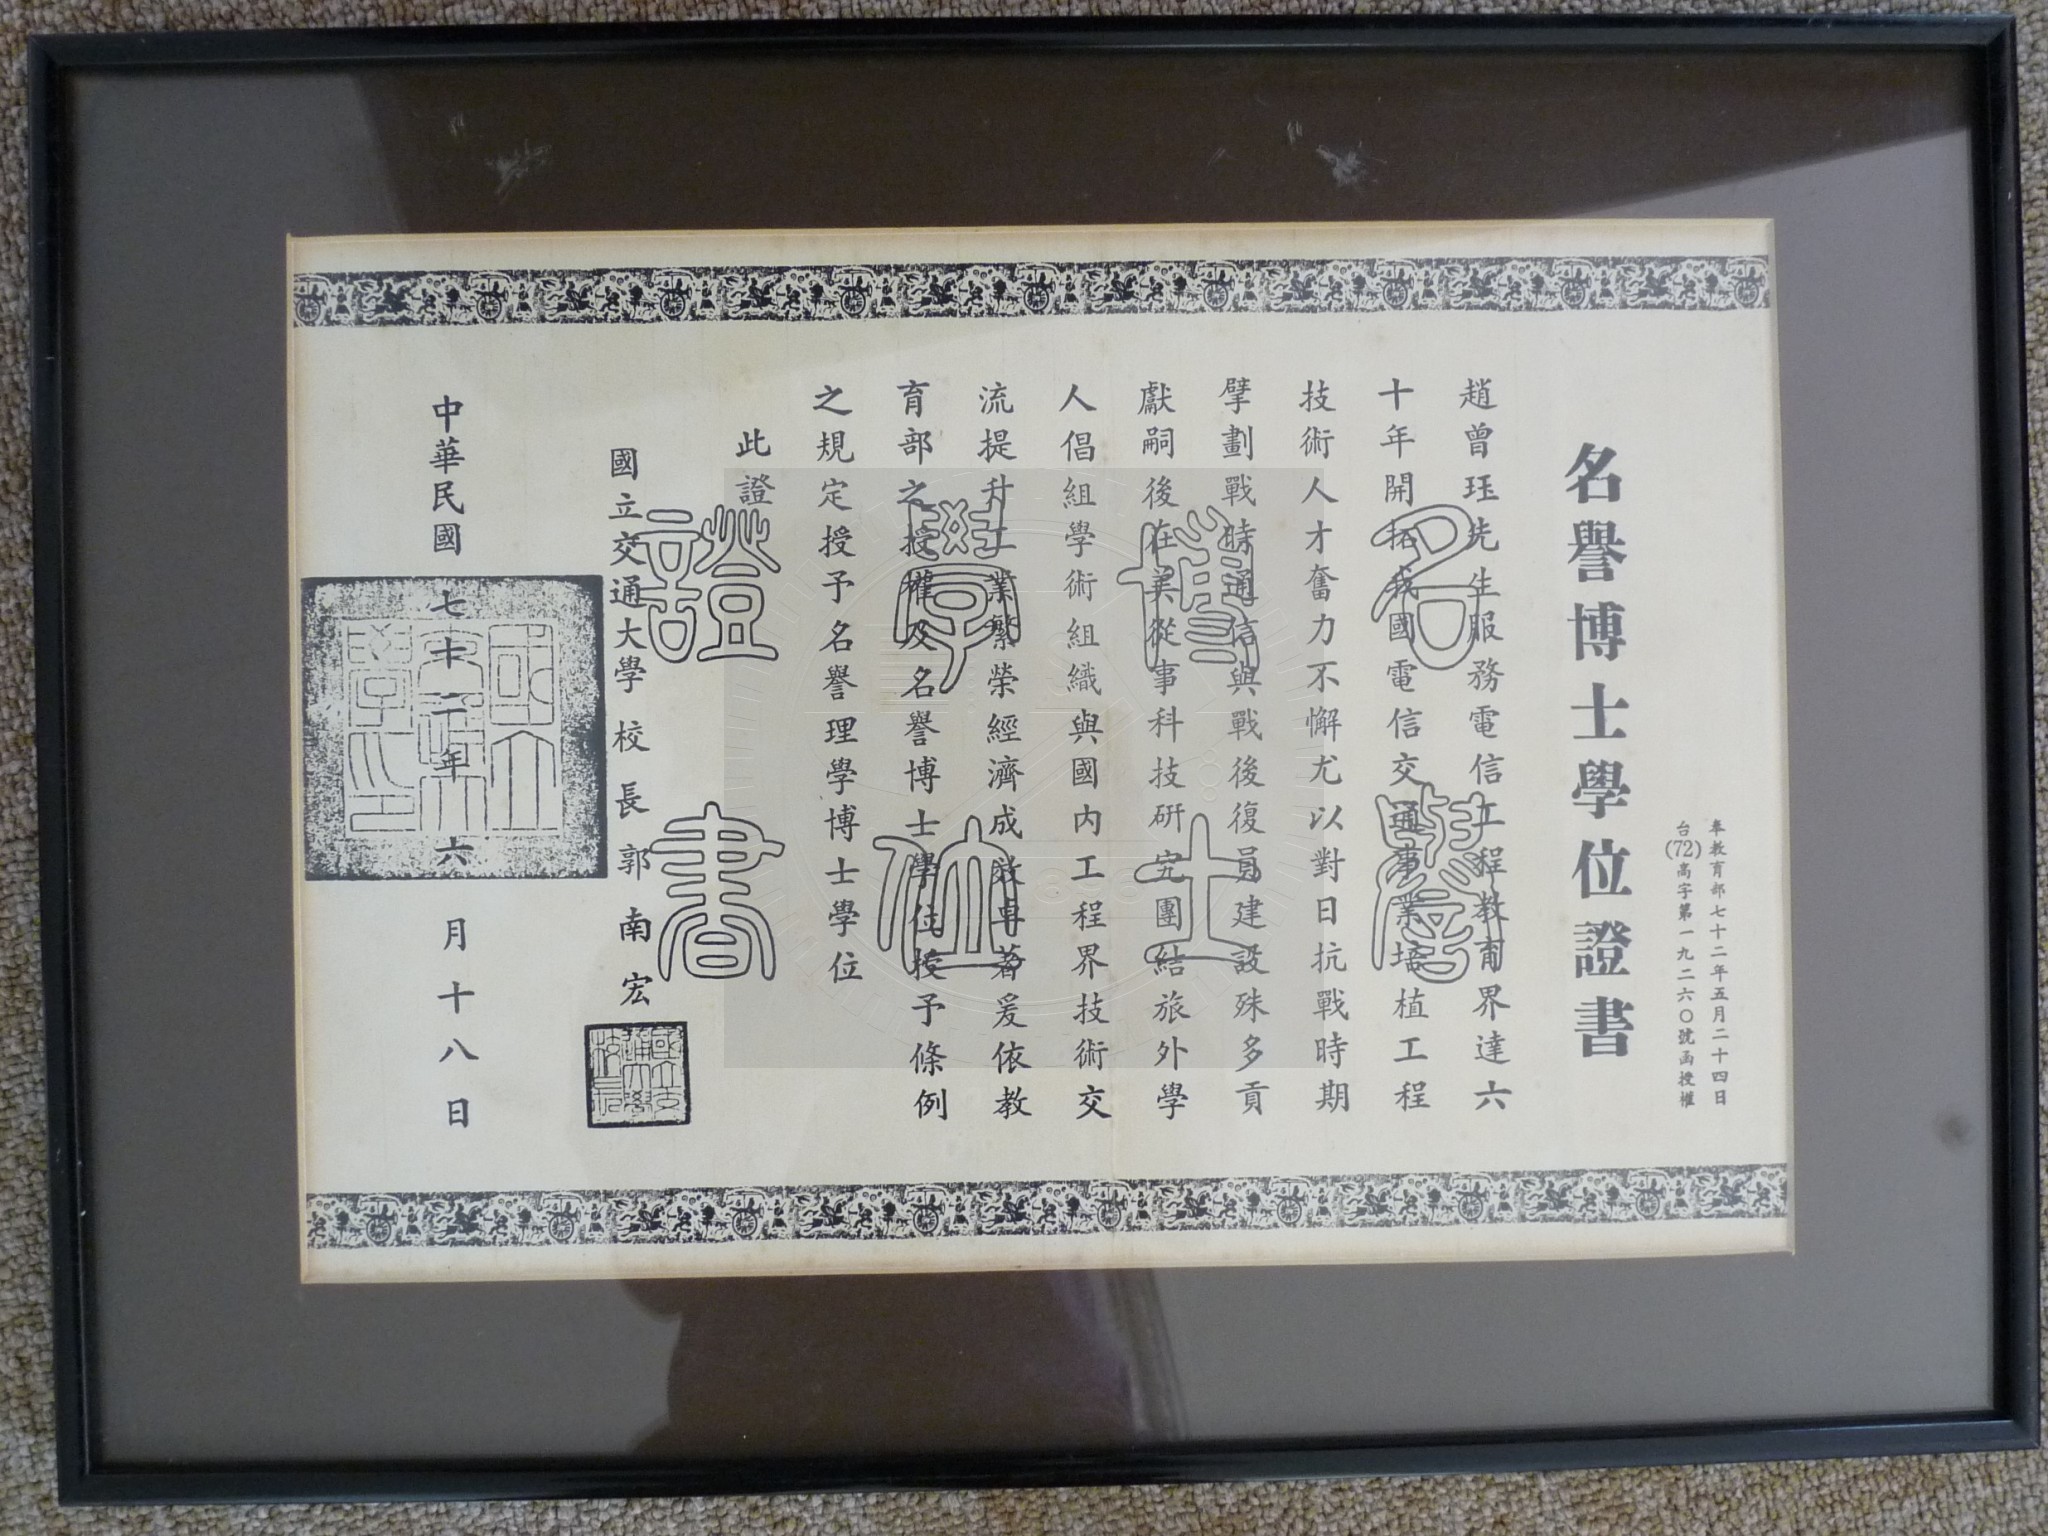 奉教育部七十二年五月二十四日
台(72)高字第一九二六〇號函授權
名譽博士學位證書
趙曾珏先生服務電信工程教育界達六
十年開拓我國電信交通事業培植工程
技術人才奮力不懈尤以對日抗戰時期
擘劃戰時通信與戰後復員建設殊多貢
獻嗣後在美從事科技研究團結旅外學
人倡組學術組織與國內工程界技術交
流提升工業繁榮經濟成效卓著爰依教
育部之授權及名譽博士學位授予條例
之規定授予名譽理學博士學位
此證
國立交通大學校長郭南宏
中華民國七十二年六月十八日
名譽
博士
學位
證書
1896